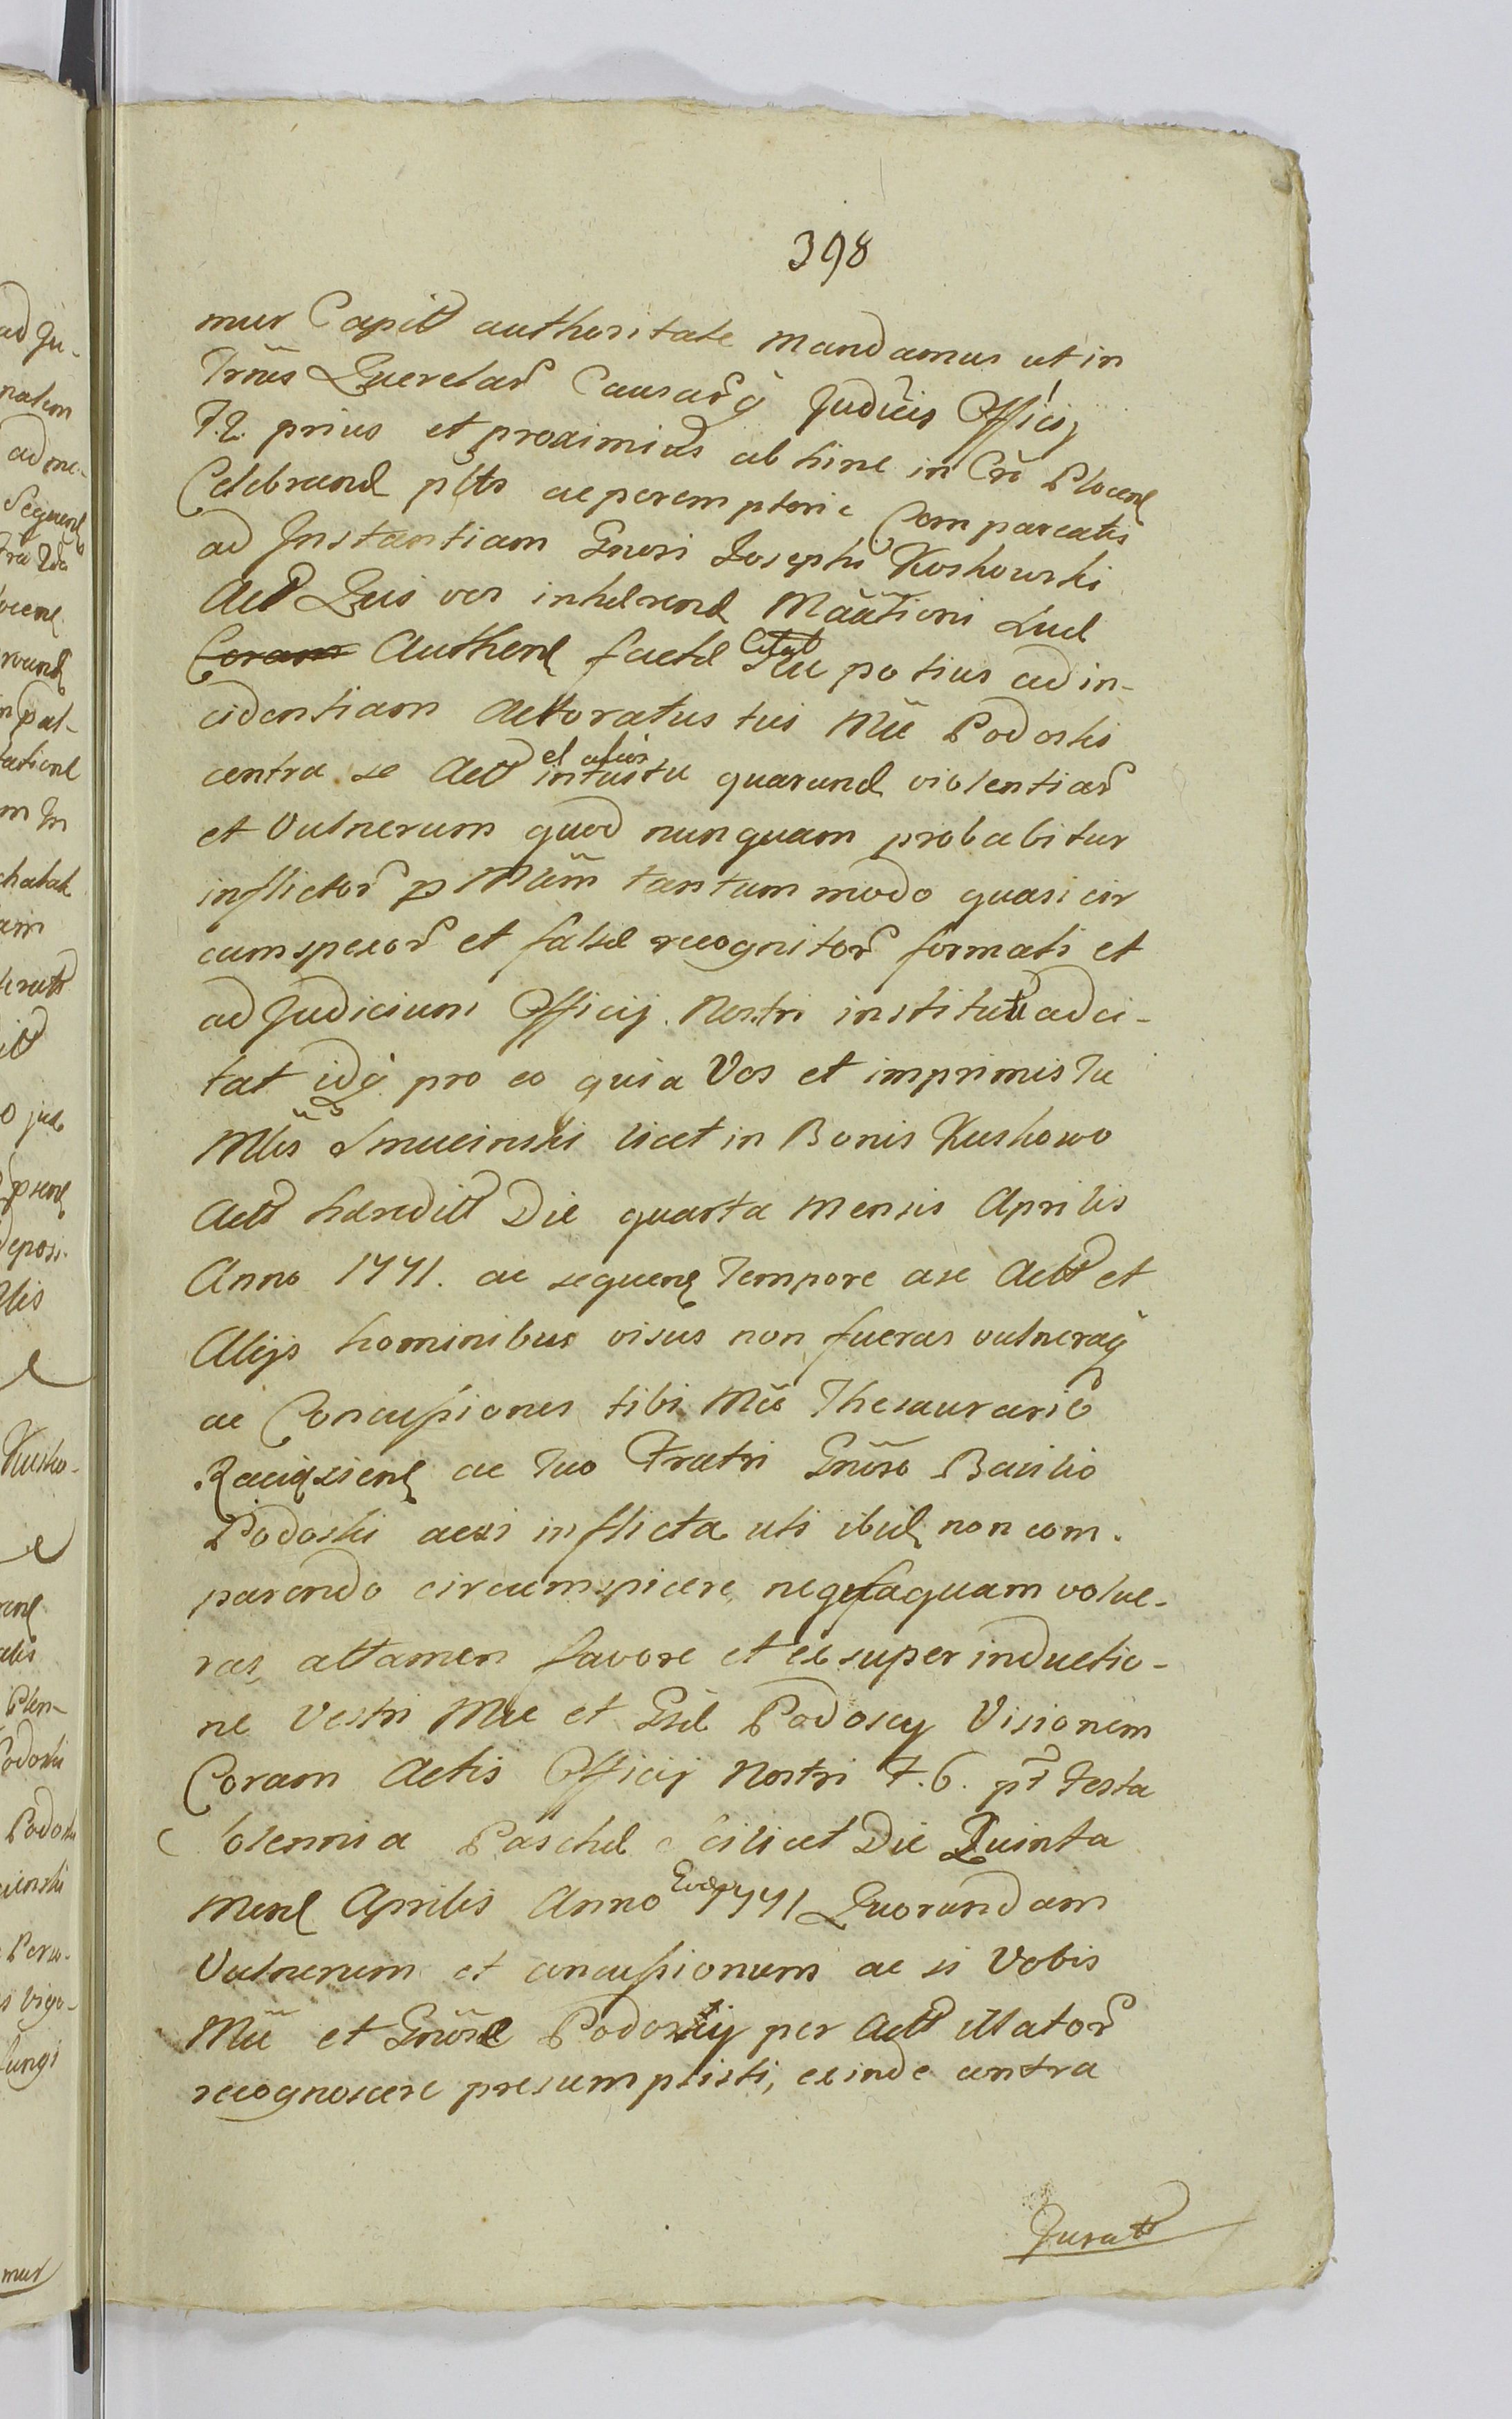 398
mur Capitt authoritate mandamus ut in
Trnis Querelar Causarq Judicis Officij
F. 2. prius et proximius ab hinc in Cro Plocen
Celebrand pltr ac peremptorie Compareatis
ad Instantiam Gnosi Josephi Koskowski
Act Quis vos inhærend Maationi Lucl
Coram Authen factæ Citat Seu potius ad in-
cidentiam Actoratus tui Mce Podoski
contra se Act et alios intuitu quarund violentiar
et Vulnerum quod nunquam probabitur
inflictor p Mcum tantummodo quasi cir
cumspexor et falsæ recognitor formati et
ad Judicium Officij Nostri institut adci-
tat idq pro eo quia Vos et imprimis Tu
Mlis Smucinski licet in Bonis Kuskowo
Act hæredit Die quarta Mensis Aprilis
Anno 1771. ac sequen Tempore a se Act et
Alijs hominibus visus non fueras vulneraq
ac Concussiones tibi Mce Thesaurario
Raciązien ac Tuo Fratri Gnoso Basilio
Podoski acsi inflicta uti ibid non com-
parendo circumspicere nequaquam volue-
ras, attamen favore et ex superinductio-
ne Vestri Mce et Gsæ Podoscy Visionem
Coram Actis Officij Nostri F. 6. pt Festa
Solennia Paschæ scilicet Die Quinta
Mens Aprilis Anno Eodem 1771 Quorundam
Vulnerum et concussionum ac si Vobis
Mce et Gnose Podoscij per Act illator
recognoscere presumpsisti, exinde contra
Jurat
ad Ju-
nation
ad me-
Sequen
ocen
round
m In
chatat
am
Kusko-
Plen-
Podoski
Podoski
Perso-
Vigo-
fungi
mur